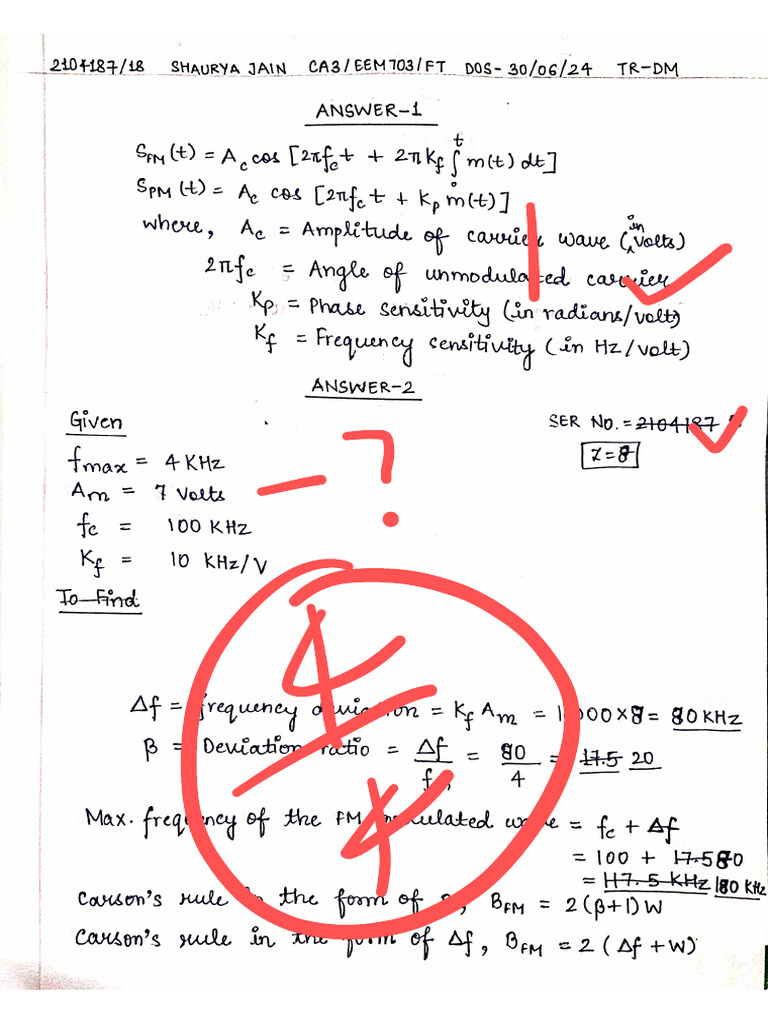 2104187/18 SHAURYA JAIN CA3/EEM703/FT DOS-30/06/24 TR-DM
ANSWER-1
S_FM(t) = A_c cos [2πf_c t + 2πK_f ∫₀ᵗ m(t) dt]
S_PM(t) = A_c cos [2πf_c t + K_p m(t)]
where, A_c = Amplitude of carrier wave (in volts)
2πf_c = Angle of unmodulated carrier
K_p = Phase sensitivity (in radians/volt)
K_f = Frequency sensitivity (in Hz/volt)
ANSWER-2
Given
SER NO. = 2104187
Z=8
fmax = 4 KHz
Am = 7 Volts — ?
fc = 100 KHz
K_f = 10 KHz/V
To Find
4/4
Δf = frequency deviation = K_f A_m = 000×8 = 80 KHz
β = Deviation ratio = Δf/f = 80/4 = 17.5 20
Max. frequency of the FM modulated wave = fc + Δf
= 100 + 17.5 80
= 117.5 KHz 180 KHz
Carson's rule in the form of β, B_FM = 2(β+1)W
Carson's rule in the form of Δf, B_FM = 2(Δf+W)